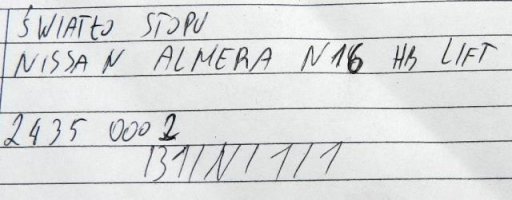 ŚWIATŁO STOPU
NISSAN ALMERA N16 HB LIFT
2435 0002
B1/N/1/1